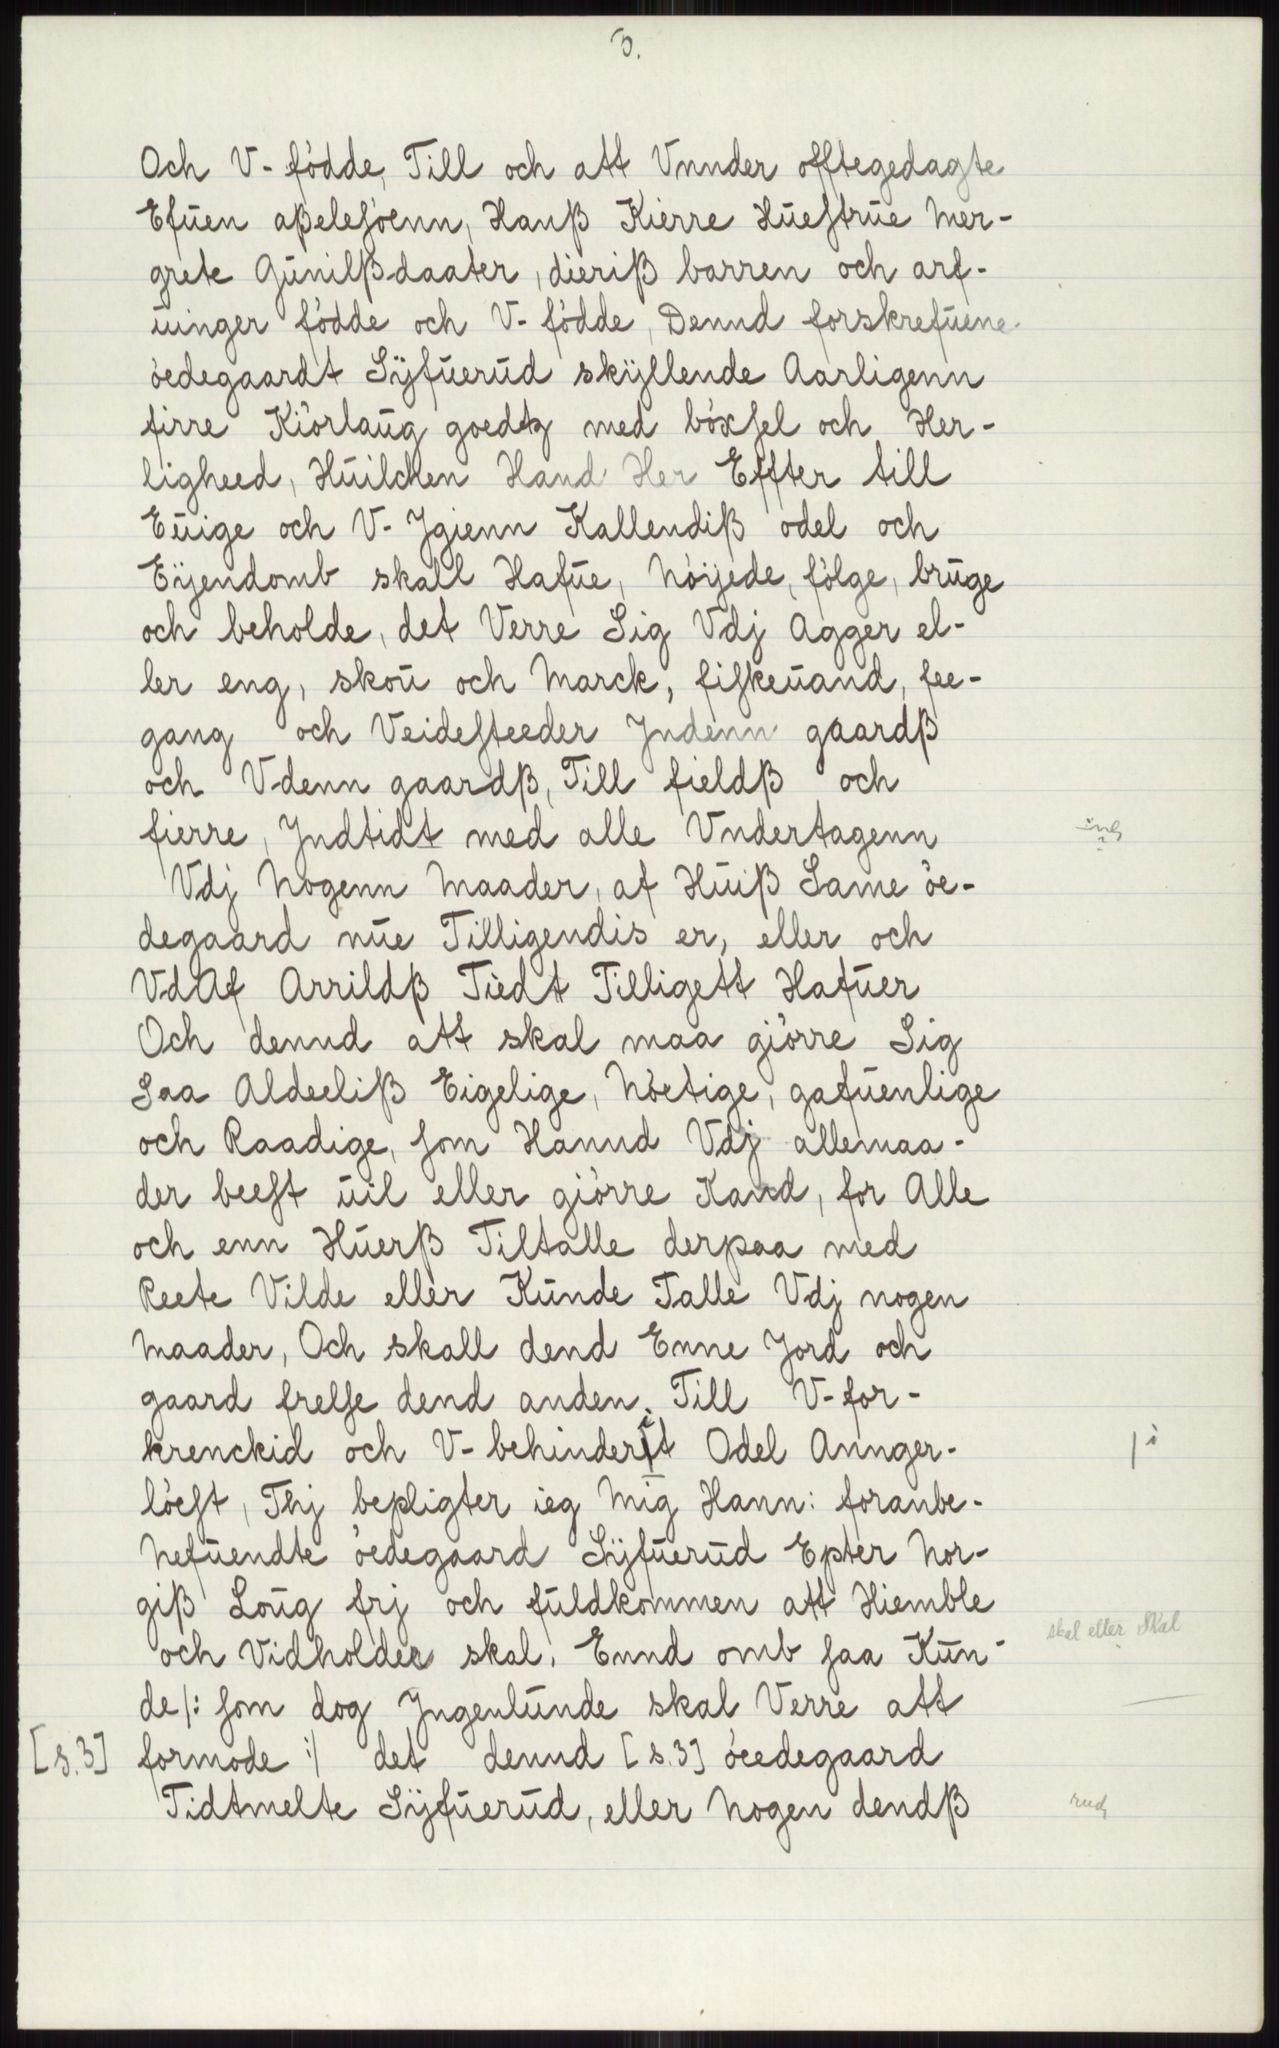 3.
Och V- fødde, Till och att Vnnder offtegedagte
Efuen aßelesøenn, Hanß Kierre Huestrue Mer-
grete Gunilßdaater, dieriß barren och arf-
uinger fødde och V- fødde, Dennd forskrefuene
øedegaardt Sÿfuerud skÿllende Aarligenn
firre Kiørlaug goedtz med bøxsel och Her-
ligheed, Huilcken Hand Her Effter till
Euige och V- Jgienn Kallendiß odel och
Eÿendomb skall Hafue, Nøÿede, følge, bruge
och beholde, det Verre Sig Vdj Agger el-
ler eng, skou och Marck, fiskeuand, fee-
gang och Veidesteeder Jndenn gaardß
och Vdenn gaardß, Till fieldß och
fierre, Jndtidt med alle Vndertagenn
Vdj Nogenn Maader, af Huiß Same øe-
degaard nue Tilligendis er, eller och
VdAf Arrildß Tiedt Tilligett Hafuer
Och dennd att skal maa giørre Sig
Saa Aldeeliß Eigelige, Nøetige, gafuenlige
och Raadige, som Hannd Vdj allemaa-
der beest uil eller giørre Kand, for Alle
och enn Huerß Tiltalle derpaa med
Reete Vilde eller Kunde Talle Vdj nogen
Maader, Och skall dend Enne Jord och
gaard frelse dend anden, Till V-for-
krenckid och V- behinderit Odel Annger-
løest, Thj bepligter ieg Mig Hann: foranbe-
Nefuendte øedegaard Sÿfuerud Epter Nor-
giß Loug frj och fuldkommen att Hiemble
och Vidholder skal. Ennd omb saa Kun-
skal eller Skal
de /: som dog Jngenlunde skal Verre att
[s.3] formode :/ det dennd [s.3] øeedegaard
Tidtmelte Sÿfuerud, eller Nogen dendß